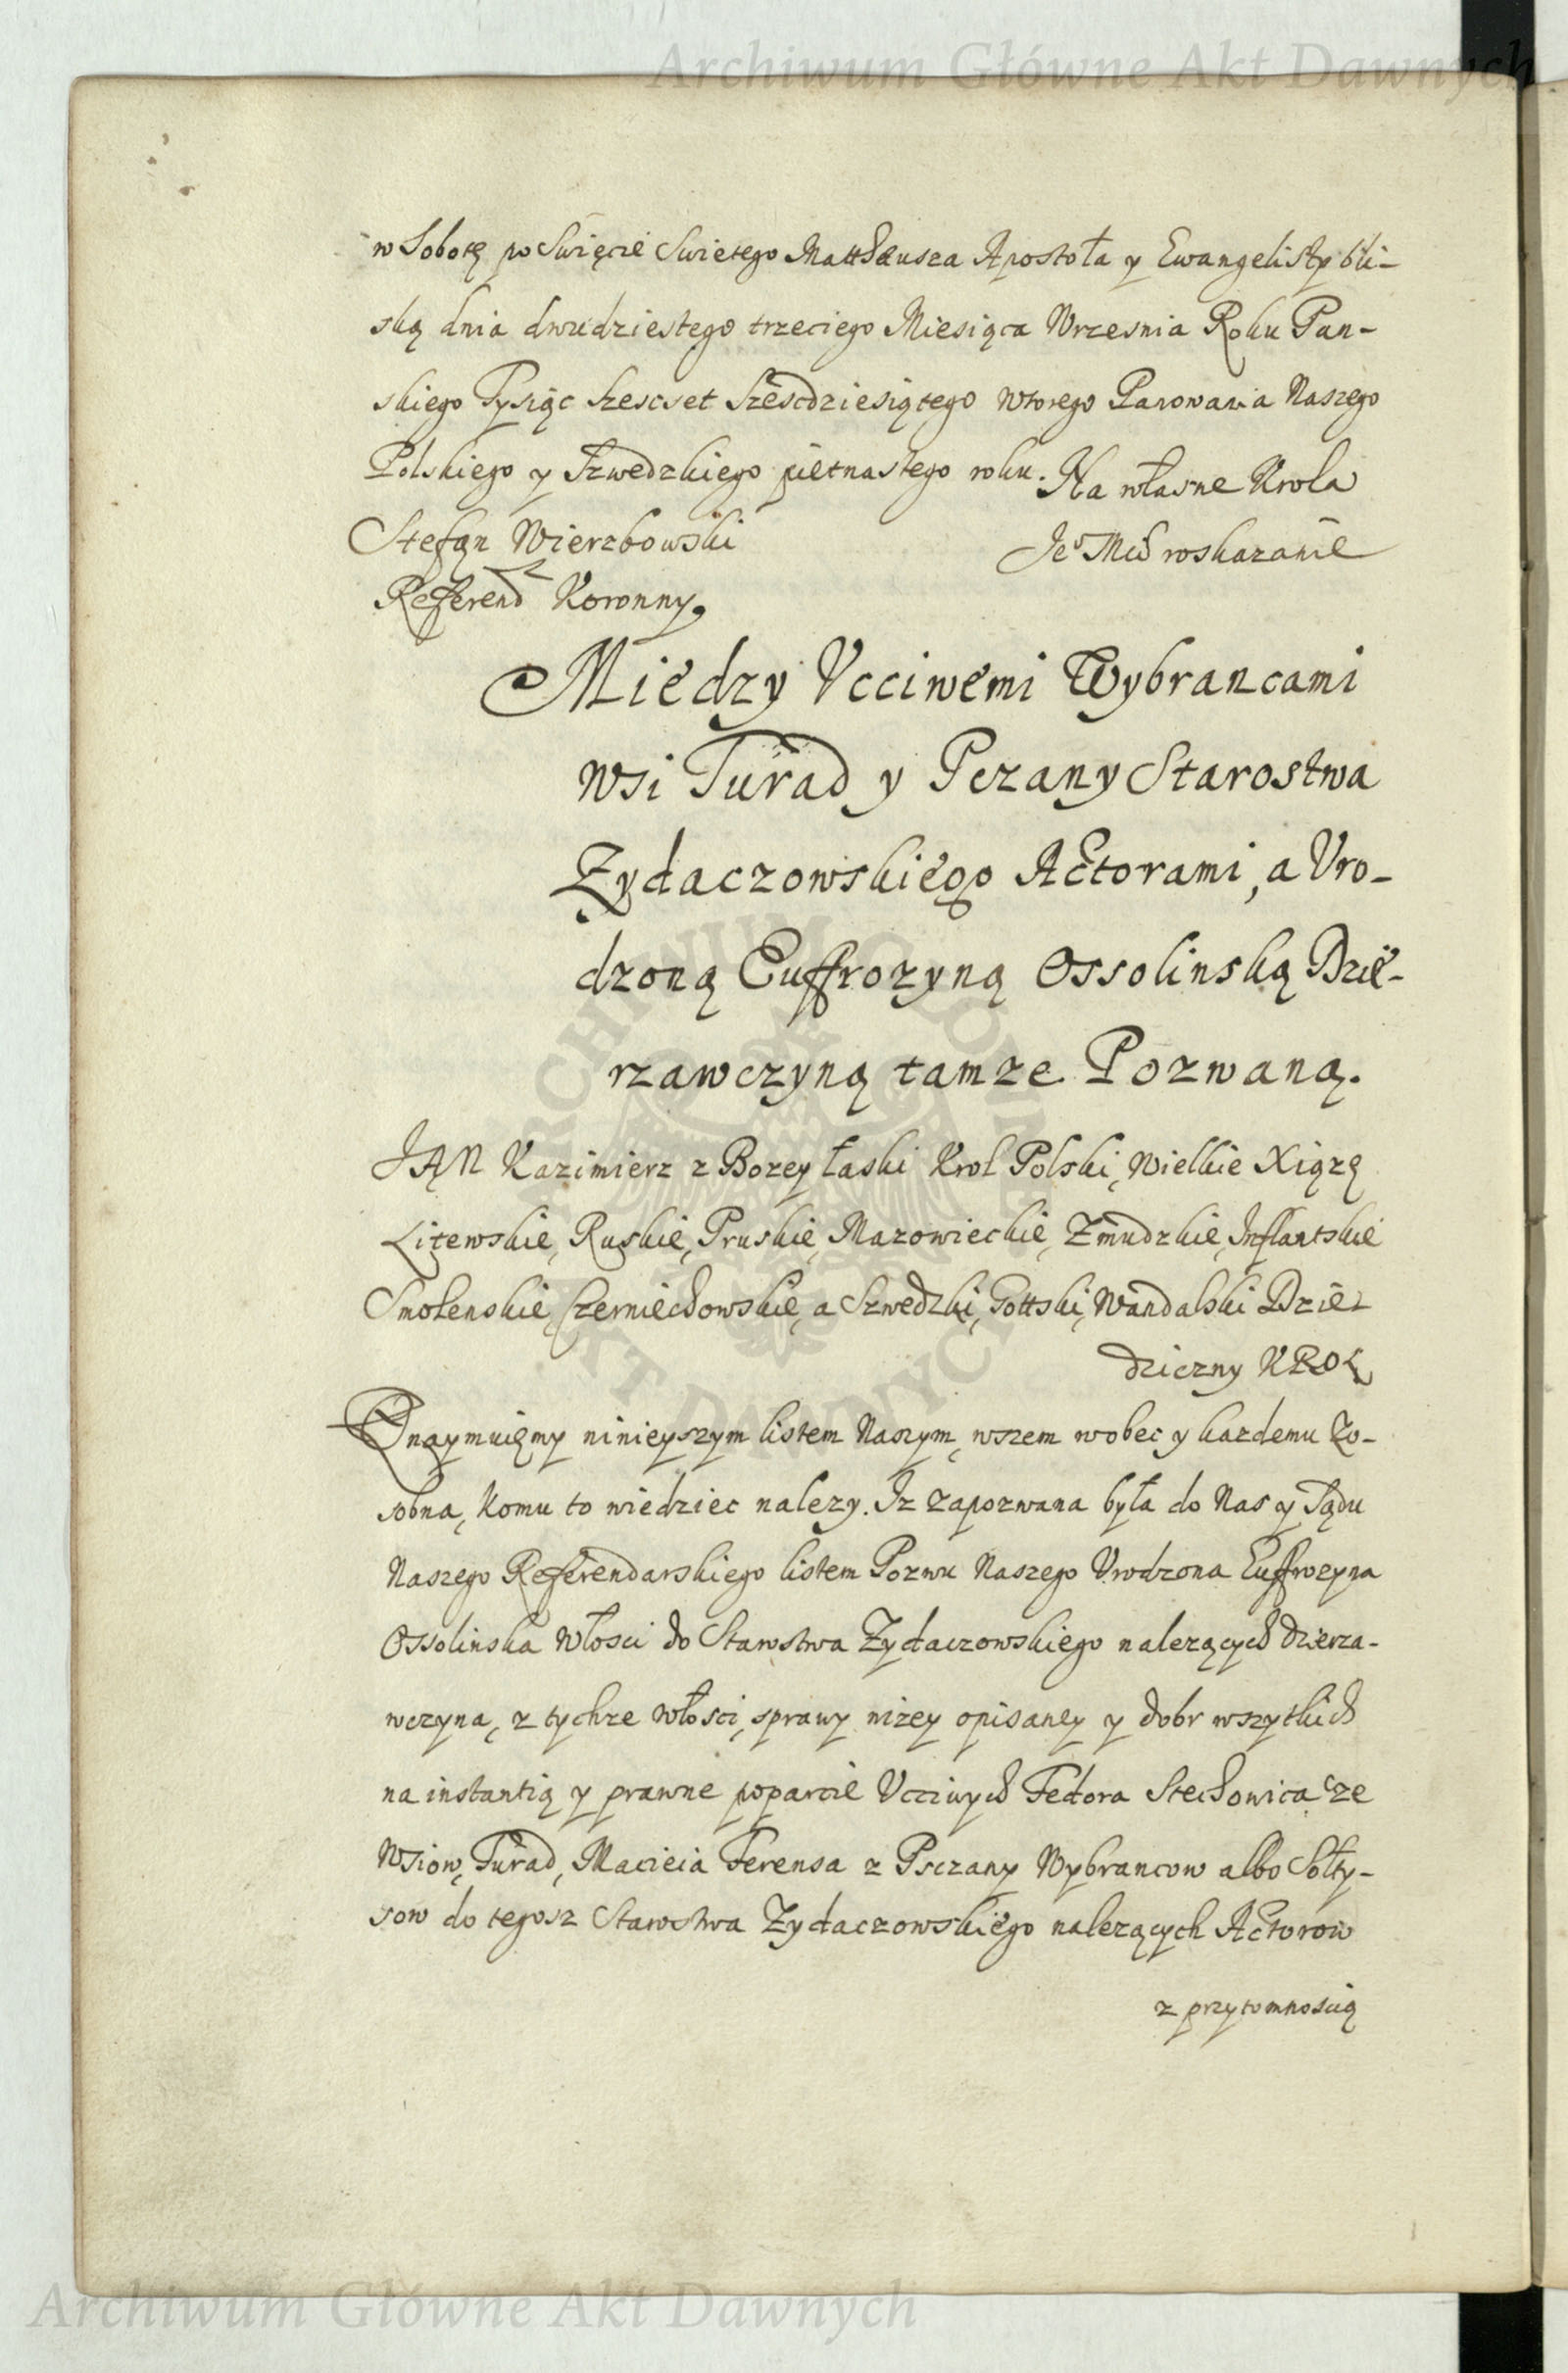 Archiwum Główne Akt Dawnych
w Sobotę po Swięcie Swietego Matthæusza Apostoła y Ewangelisty bli-
ską dnia dwudziestego trzeciego Miesiąca Wrzesnia Roku Pan-
skiego Tysiąc szescset szescdziesiątego wtorego Panowania Naszego
Polskiego y Szwedzkiego pietnastego roku. Na własne Krola
Stefan Wierzbowski Jeo Mci roskazanie
Referend Koronny
Miedzy Vcciwemi Wybrancami
wsi Turad y Pczany Starostwa
Zydaczowskiego Actorami, a Vro-
dzoną Euffrozyną Ossolinską Dzie-
rzawczyną tamze Pozwaną.
JAN Kazimierz z Bozey łaski Krol Polski, Wielkie Xiązę
Litewskie, Ruskie, Pruskie, Mazowieckie, Zmudzkie, Inflantskie
Smolenskie, Czerniechowskie, a Szwedzki, Gottski, Wandalski Dzie-
dziczny KROL
Oznaymuięmy ninieyszym listem Naszym, wszem wobec y kazdemu zo-
sobna, komu to wiedziec nalezy. Iz zapozwana była do Nas y Sądu
Naszego Referendarskiego listem Pozwu Naszego Vrodzona Euffrozyna
Ossolinska włosci do Starostwa Zydaczowskiego nalezących dzierza-
wczyna, z tychze włosci, sprawy nizey opisaney y dobr wszytkich
na instantią y prawne poparcie Vcciwych Fedora Stechowica ze
wsiow, Turad, Macieia Ferensa z Psczany Wybrancow albo Sołty-
sow do tegosz Starostwa Zydaczowskiego nalezących Actorow
z przytomnoscią
Archiwum Główne Akt Dawnych